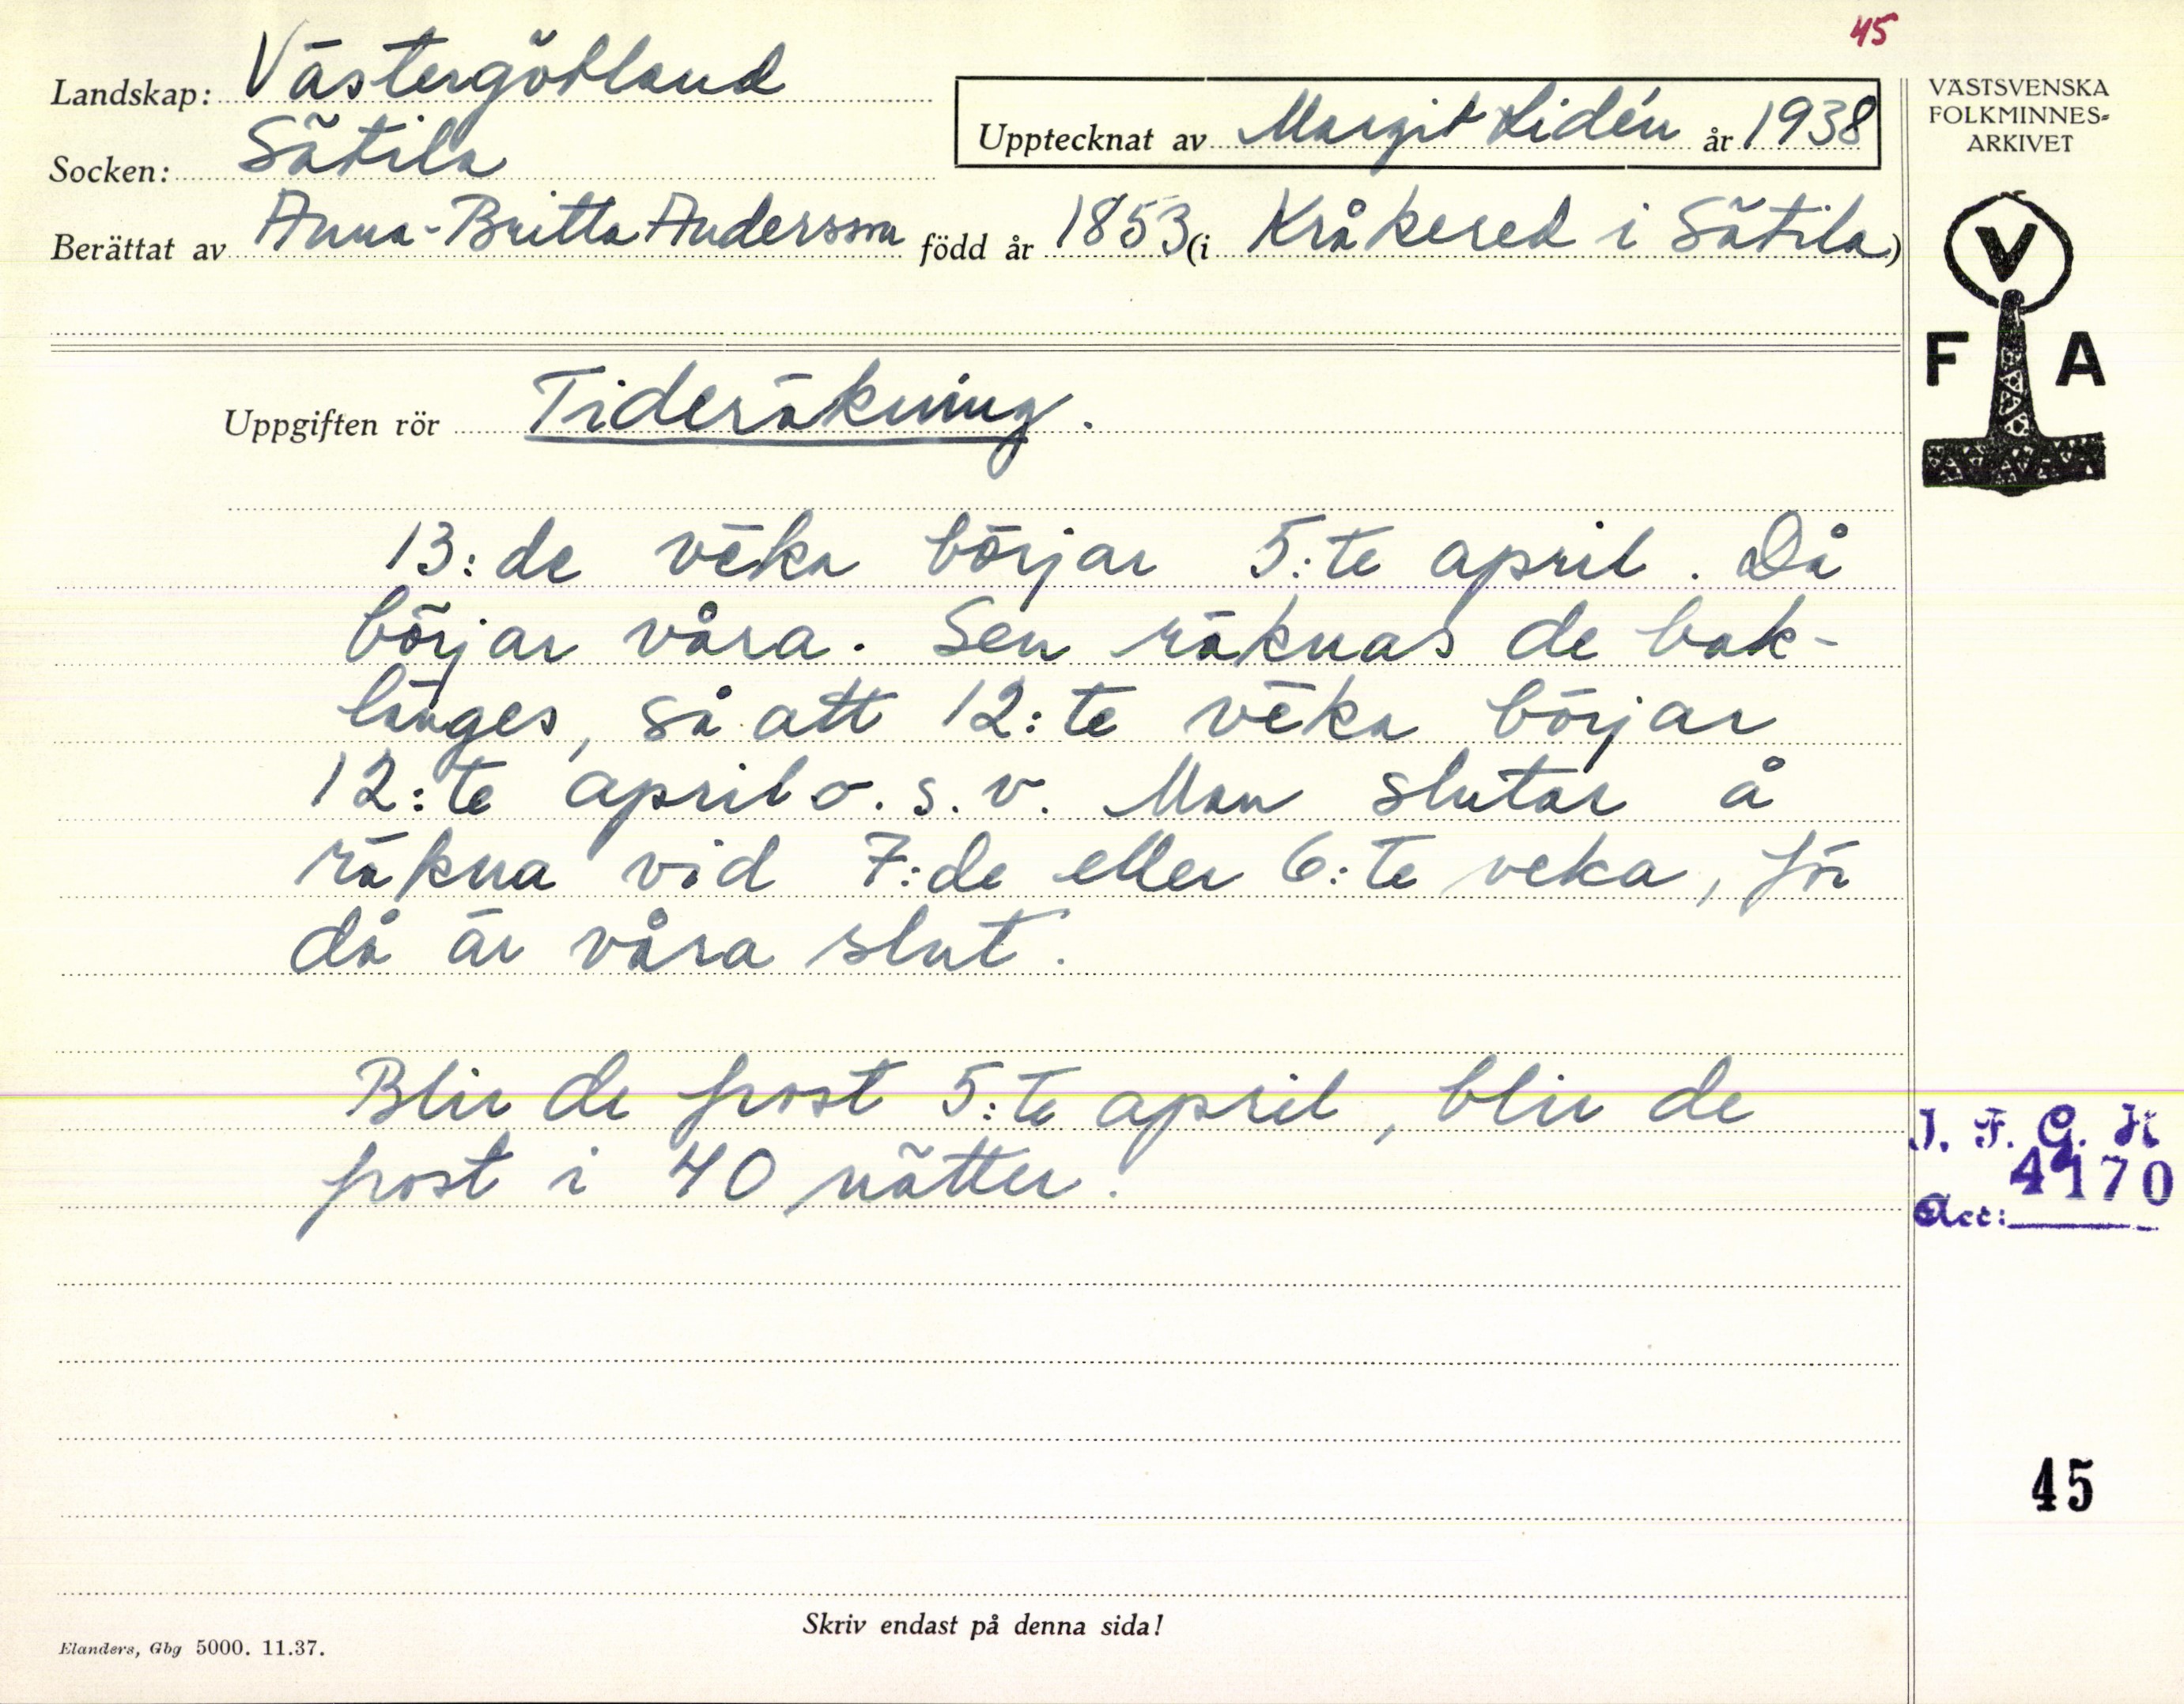 45
Landskap: Västergötland
Socken: Sätila
Upptecknat av Margit Lidén år 1938
Berättat av Anna-Britta Andersson född år 1853 (i Kråkered i Sätila)
VÄSTSVENSKA
FOLKMINNES-
ARKIVET
V
F A
Uppgiften rör Tideräkning.
13:de vēka börjar 5:te april. Då
börjar våra. Sen räknas de bak-
länges, så att 12:te vēka börjar
12:te april o.s.v. Man slutar å
räkna vid 7:de eller 6:te veka, för
då är våra slut.
Blir de frost 5:te april, blir de
frost i 40 nätter.
I. F. G. H
4170
Acc:
45
Skriv endast på denna sida!
Elanders, Gbg 5000. 11.37.